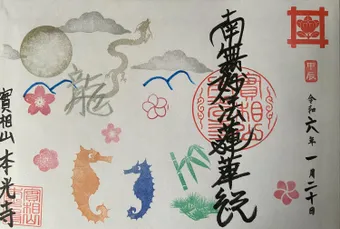 甲辰
令和六年 一月二十日
南無妙法蓮華経
龍
實相山 本光寺
實相山